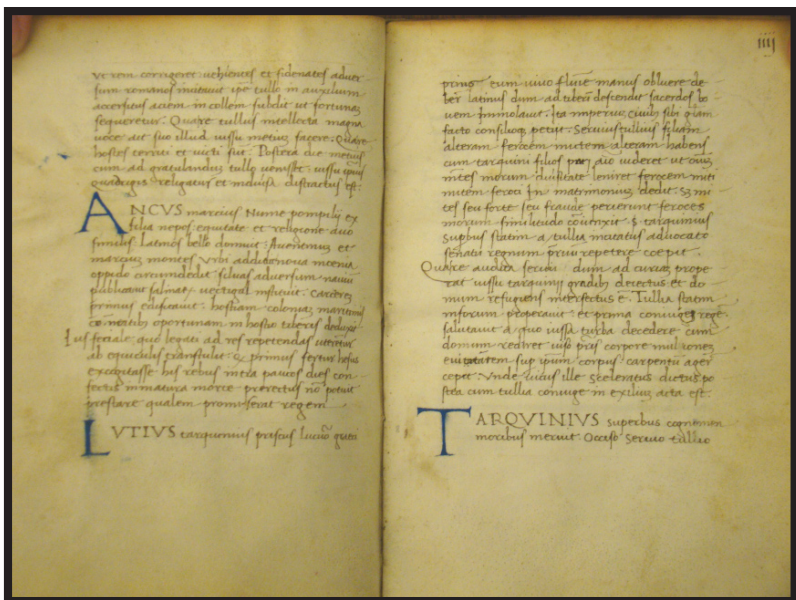 ut rem corrigeret: vehientes et fidenates adver
sum romanos invitavit ipe tullo in auxilium
accersitus aciem in collem subduxit ut fortunam
sequeretur. Quare tullus intellecta magna
voce ait suo illud iussu metium facere. Quare
hostes territi et victi sūt. Postera die metius
cum ad gratulandum tullo venisset iussu ipius
quadrigis religatus et in diversa distractus est.
ANCVS marcius Nume pompilij ex
filia nepos equitate et religione avo
similis latinos bello domuit: Aventinum et
marcium montes Urbi addidit nova menia
oppido circumdedit silvas adversum navium
publicavit salinarum vectigal instituit. Carcerem
primus edificavit. hostiam coloniam maritimis
comeatib oportunam in hostio tiberis deduxit
Ius feciale quo legati ad res repetendas uterentur
ab equiculis transtulit q primus fertur hesus
excogitasse his rebus intra paucos dies con
fectis immatura morte prereptus nō potuit
prestare qualem promiserat regem
LUTIVS tarquinius priscus Lucumōis greci
IIII
prius eum vivo flumie manus obluere de
ber latinus dum ad tiberī descendit sacerdos bo
vem immolavit. Ita imperium civib sibi glam
facto consilioq petiit. Servius tullius filiam
alteram ferocem mitem alteram habens
cum tarquini filios pari aīo videret ut oiū
mētes morum diversitate leniret ferocem miti
mitem feroci in matrimonium dedit. Sz mi
tes seu forte seu fraude perierunt feroces
morum similitudo cōiunxit. S. tarquinius
supbus statim a tullia incitatus advocato
senatu regnum priū repetere coepit.
Quare audita servius dum ad curiam prope
rat iussu tarquinij gradib deiectus et do
mum refugiens interfectus ē. Tullia statim
in forum properavit et prima coniugē regē
salutavit a quo iussa turba decedere cum
domum rediret viso pris corpore mulionem
evitatem sup ipm corpus carpentū agere
cepit. Unde vicus ille sceleratus dictus po
stea cum tullia coniuge in exilium acta est.
TARQVINIVS superbus cognomen
moribus meruit. Occiso Servio tullio